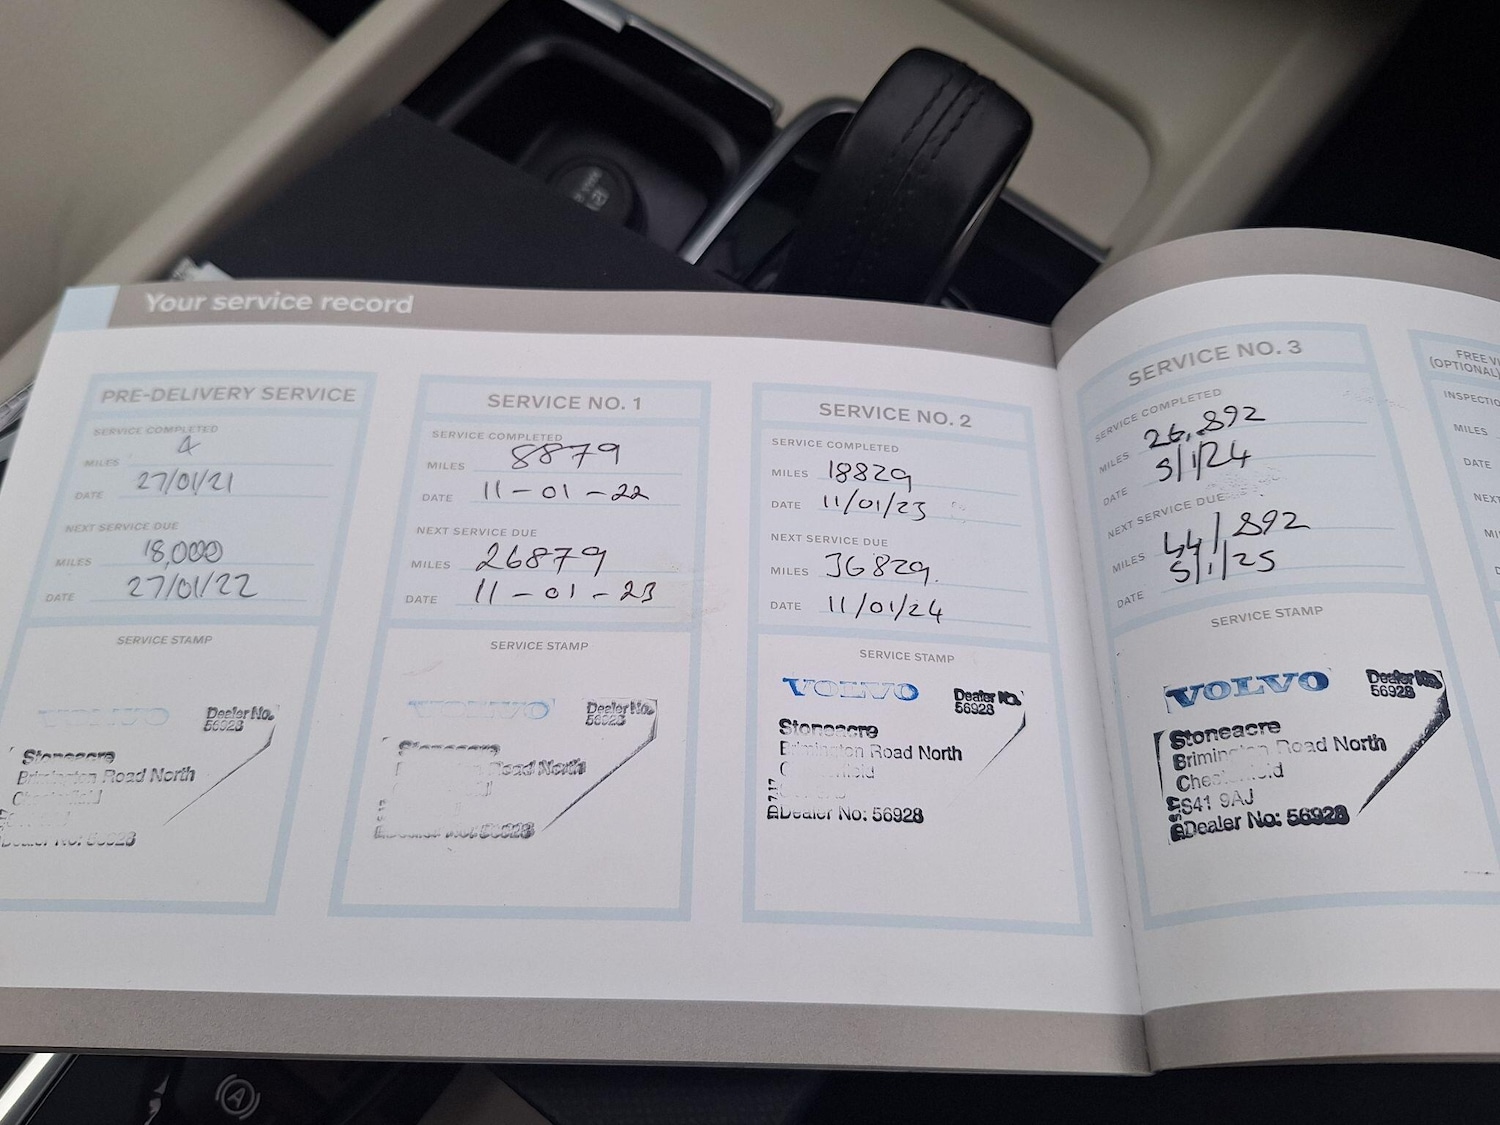 Your service record
PRE-DELIVERY SERVICE
SERVICE COMPLETED
MILES 4
DATE 27/01/21
NEXT SERVICE DUE
MILES 18,000
DATE 27/01/22
SERVICE STAMP
VOLVO
Dealer No.
56928
Stoneacre
Brimington Road North
Chesterfield
Dealer No: 56928
SERVICE NO. 1
SERVICE COMPLETED
MILES 8879
DATE 11-01-22
NEXT SERVICE DUE
MILES 26879
DATE 11-01-23
SERVICE STAMP
VOLVO
Dealer No.
56928
Stoneacre
Road North
Dealer No: 56928
SERVICE NO. 2
SERVICE COMPLETED
MILES 18829
DATE 11/01/23
NEXT SERVICE DUE
MILES 36829.
DATE 11/01/24
SERVICE STAMP
VOLVO
Dealer No.
56928
Stoneacre
Brimington Road North
Dealer No: 56928
SERVICE NO. 3
SERVICE COMPLETED
MILES 26,892
DATE 5/1/24
NEXT SERVICE DUE
MILES 44/892
DATE 5/1/25
SERVICE STAMP
VOLVO
Dealer No.
56928
Stoneacre
Brimington Road North
Chesterfield
S41 9AJ
Dealer No: 56928
FREE
(OPTIONAL)
MILES
DATE